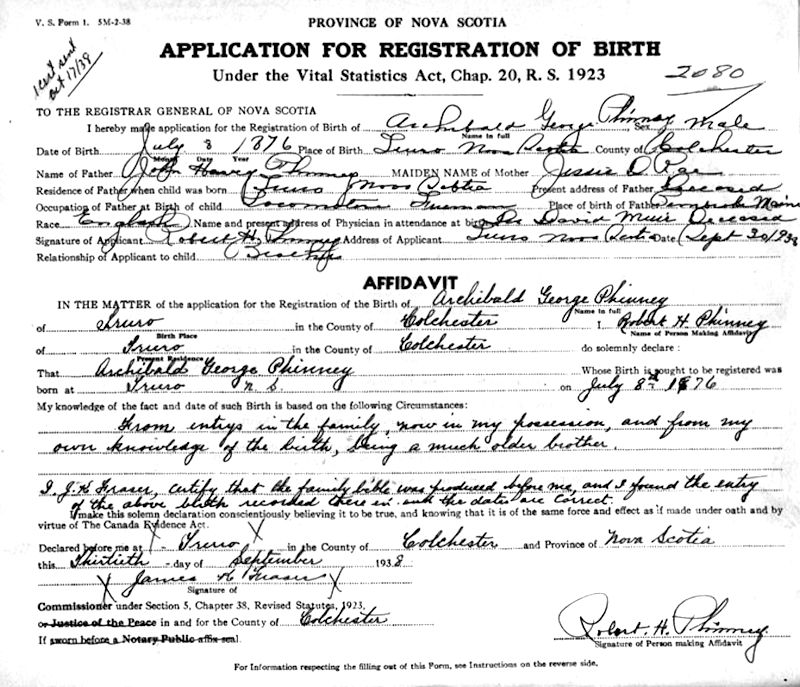 V. S. Form 1. 5M-2-38
PROVINCE OF NOVA SCOTIA
APPLICATION FOR REGISTRATION OF BIRTH
Under the Vital Statistics Act, Chap. 20, R. S. 1923
1 cert sent
Oct 17/38
2080
TO THE REGISTRAR GENERAL OF NOVA SCOTIA
I hereby make application for the Registration of Birth of Archibald George Phinney Sex Male
Name in full
Date of Birth July 8 1876 Place of Birth Truro Nova Scotia County of Colchester
Month Date Year
Name of Father John Phinney MAIDEN NAME of Mother Jessie D.
Residence of Father when child was born Truro Nova Scotia Present address of Father Deceased
Occupation of Father at Birth of child Locomotive Fireman Place of birth of Father Pembroke Maine
Race English Name and present address of Physician in attendance at birth David Muir Deceased
Signature of Applicant Robert H. Phinney Address of Applicant Truro Nova Scotia Date Sept 30/1938
Relationship of Applicant to child Brother
AFFIDAVIT
IN THE MATTER of the application for the Registration of the Birth of Archibald George Phinney
Name in full
of Truro in the County of Colchester I, Robert H. Phinney
Birth Place Name of Person Making Affidavit
of Truro in the County of Colchester do solemnly declare :
Present Residence
That Archibald George Phinney Whose Birth is sought to be registered was
born at Truro N. S. on July 8th 1876
My knowledge of the fact and date of such Birth is based on the following Circumstances:
From entrys in the family, now in my possession, and from my
own knowledge of the birth, being a much older brother.
I, J. K. Fraser, certify that the family bible was produced before me, and I found the entry
of the above birth recorded there in and the dates are correct.
I make this solemn declaration conscientiously believing it to be true, and knowing that it is of the same force and effect as if made under oath and by
virtue of The Canada Evidence Act.
Declared before me at Truro in the County of Colchester and Province of Nova Scotia
this Thirtieth day of September 1938
X James K Fraser X
Signature of
Commissioner under Section 5, Chapter 38, Revised Statutes, 1923,
or Justice of the Peace in and for the County of Colchester
If sworn before a Notary Public affix seal.
Robert H. Phinney
Signature of Person making Affidavit
For Information respecting the filling out of this Form, see Instructions on the reverse side.